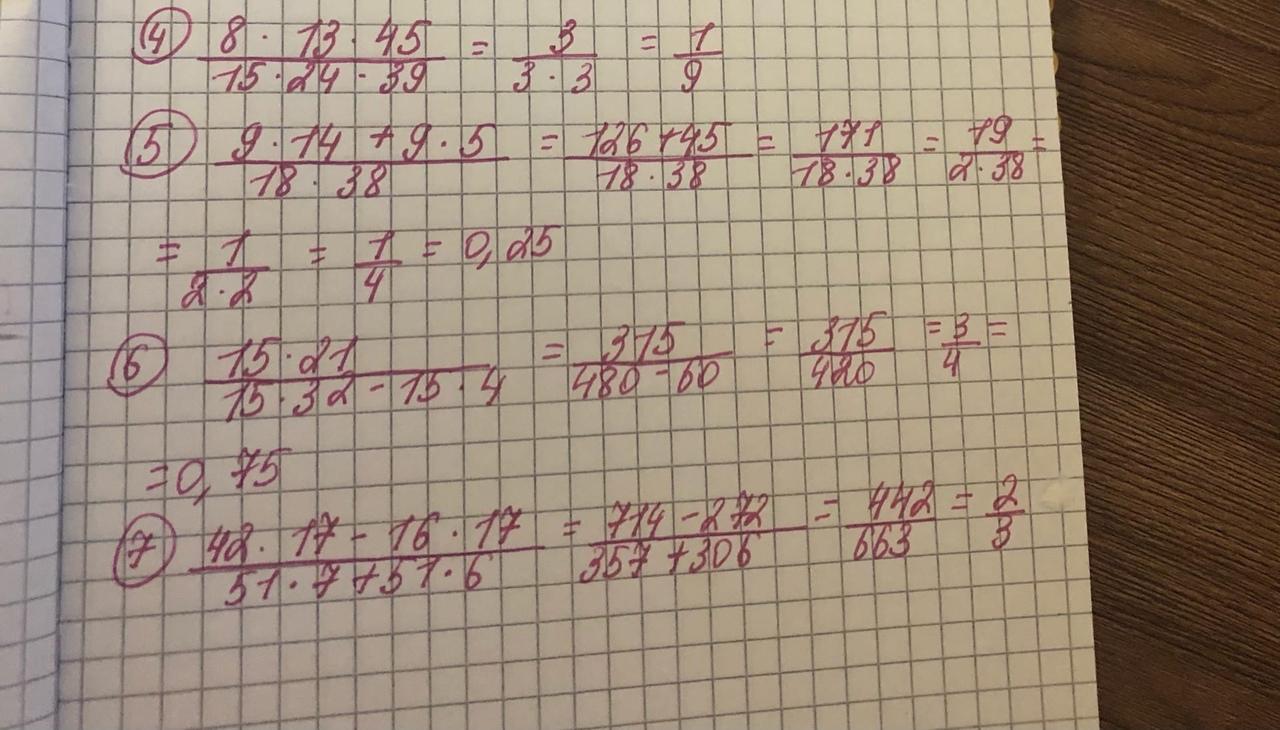 ④ 8 · 13 · 45 / 15 · 24 · 39 = 3 / 3 · 3 = 1 / 9
⑤ 9 · 14 + 9 · 5 / 18 · 38 = 126 + 45 / 18 · 38 = 171 / 18 · 38 = 19 / 2 · 38 =
= 1 / 2 · 2 = 1 / 4 = 0,25
⑥ 15 · 21 / 15 · 32 - 15 · 4 = 315 / 480 - 60 = 315 / 420 = 3 / 4 =
= 0,75
⑦ 42 · 17 - 16 · 17 / 51 · 7 + 51 · 6 = 714 - 272 / 357 + 306 = 442 / 663 = 2 / 3